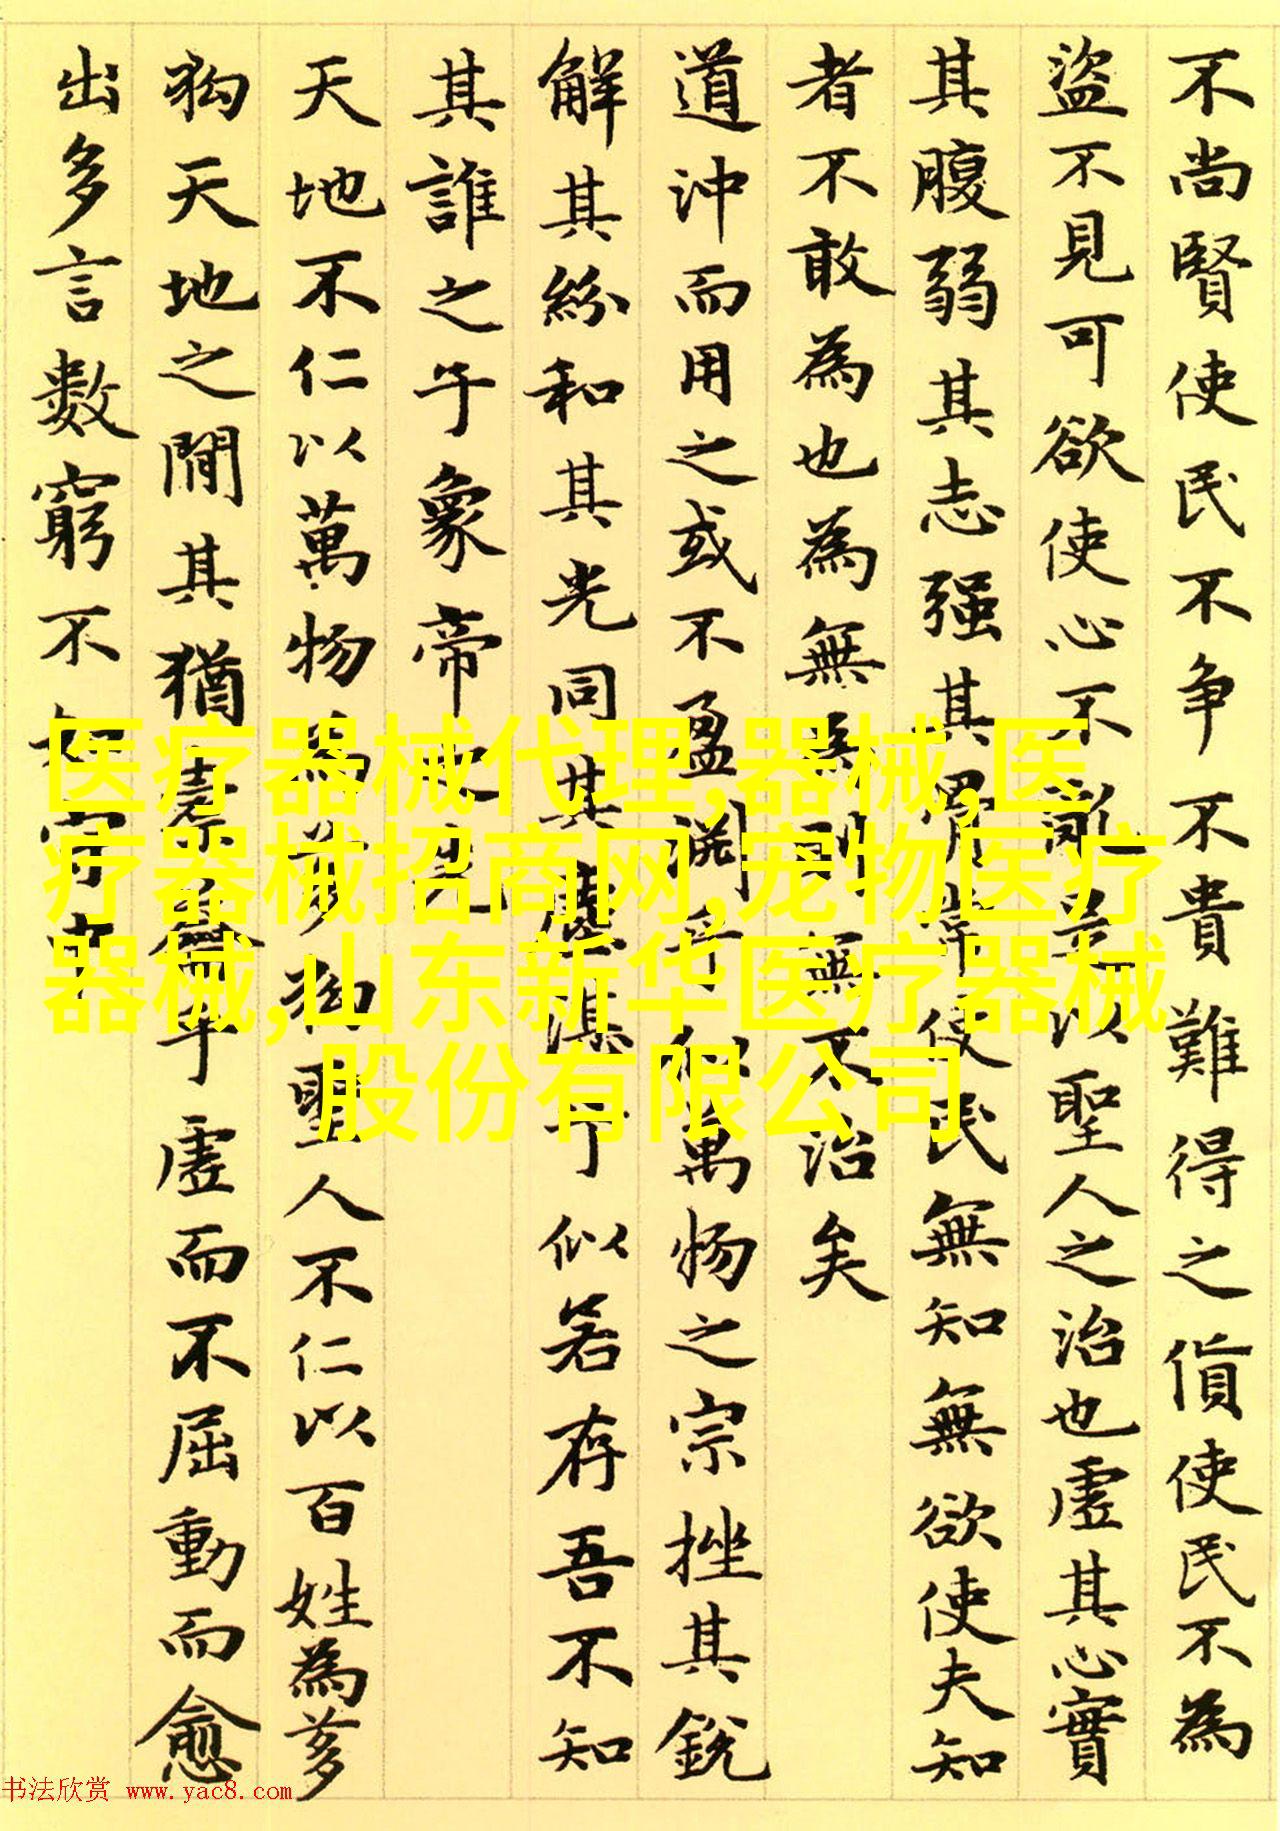 不尚賢使民不争不貴難得之貨使民不為
盜不見可欲使心不亂是以聖人之治也虛其心實
其腹弱其志强其骨常使民無知無欲使夫知
者不敢為也為無為則無不治矣
道沖而用之或不盈淵乎似萬物之宗挫其銳
解其紛和其光同其塵湛兮似若存吾不知
其誰之子象帝之先
天地不仁以萬物為芻狗聖人不仁以百姓為芻
狗天地之間其猶橐籥乎虛而不屈動而愈
出多言數窮不如守中
医疗器械代理,器械,医
疗器械招商网,宠物医疗
器械,山东新华医疗器械
股份有限公司
书法欣赏 www.yac8.com